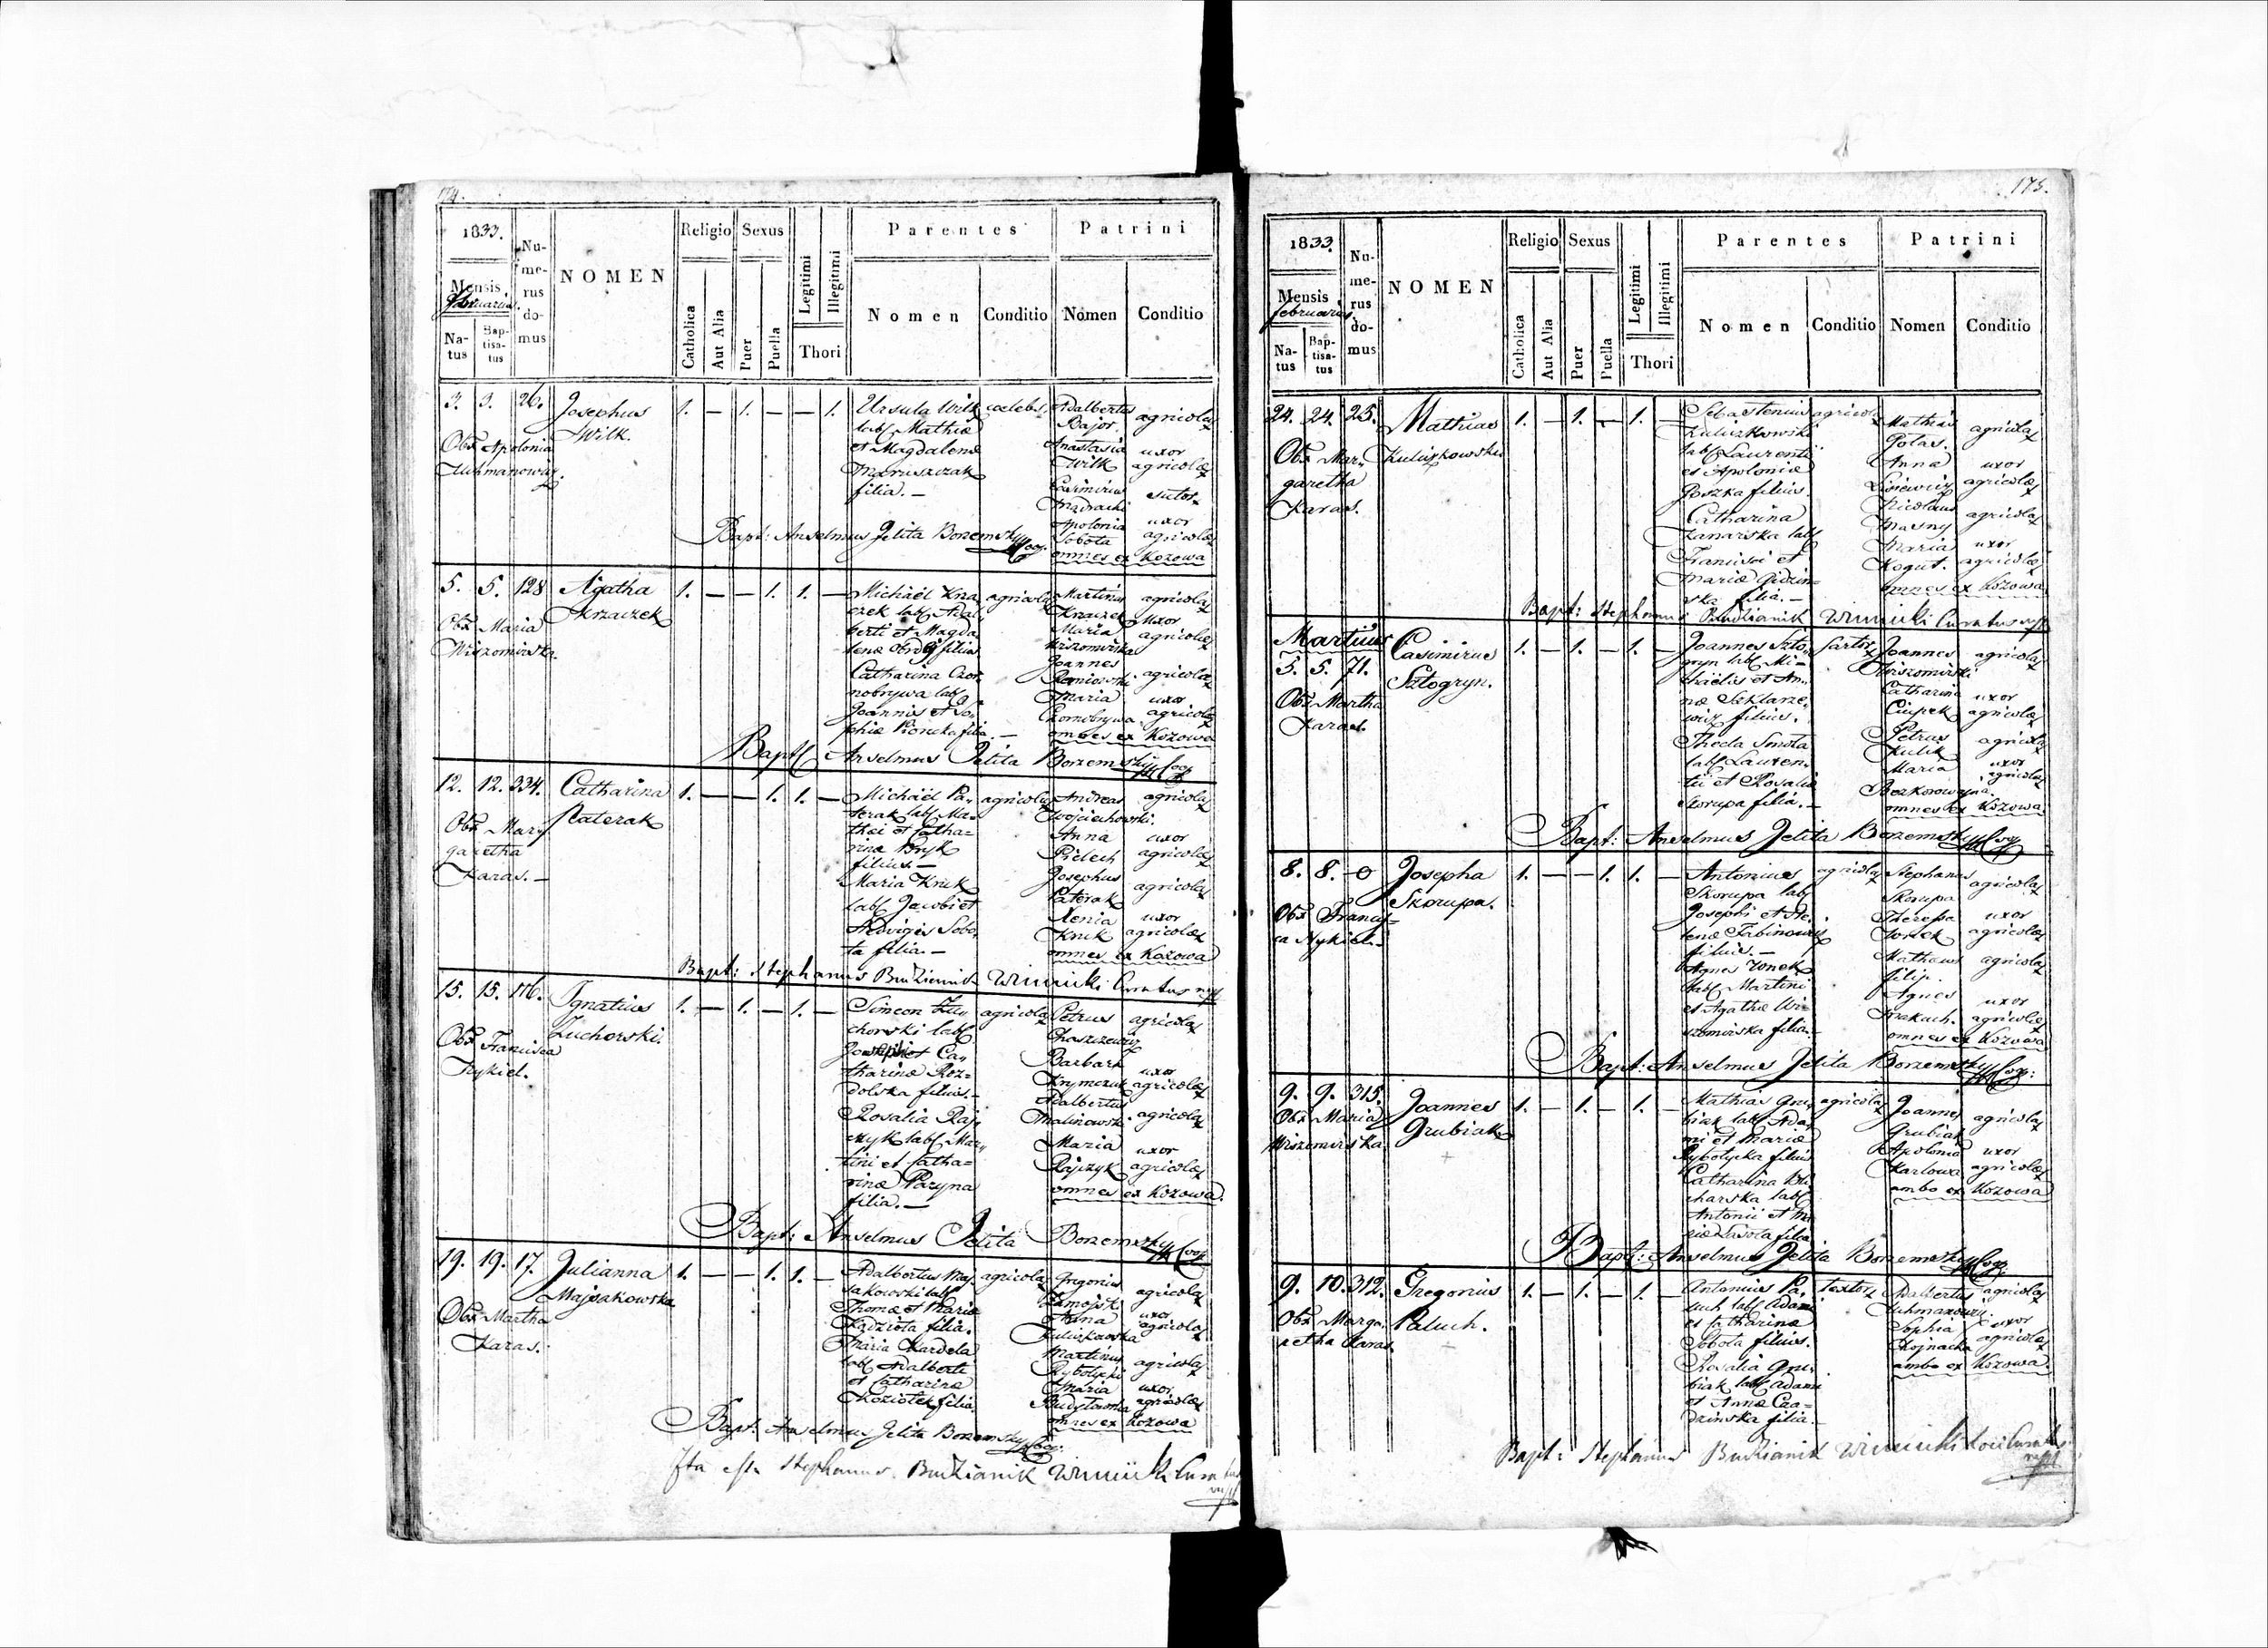 174.
1833.
Mensis
Februarius.
Na-
tus
Bap-
tisa-
tus
Nu-
me-
rus
do-
mus
NOMEN
Religio
Catholica
Aut Alia
Sexus
Puer
Puella
Legitimi
Illegitimi
Thori
Parentes
Nomen
Conditio
Patrini
Nomen
Conditio
3. 3. 26.
Obx Apolonia
Josephus
Wilk.
1. — 1. — — 1.
Ursula Wilk
lab Mathiæ
et Magdalenæ
Maruszczak
filia. —
cælebs.
Adalbertus
Bajor.
Anastasia
Wilk
Casimirus
Apolonia
Sobota
omnes ex Kozowa
agricola
uxor
agricolæ
sutor
uxor
agricolæ
Bapt: Anselmus Jelita Borzemsky Coop.
5. 5. 128
Obx Maria
Wiszomirska.
Agatha
Krzaczek
1. — — 1. 1. —
Michaël Krza
czek lab Adal
berti et Magda
lenæ filius
Catharina Czor
nobrywa lab
Joannis et So,
phiæ filia. —
agricola
Martinus
Krzaczek
Maria
Wiszomirska
Joannes
Maria
Czornobrywa
omnes ex Kozowa
agricola
Uxor
agricolæ
agricola
uxor
agricolæ
Bapt Anselmus Jelita Borzemsky Coop
12. 12. 334.
Obx Mar,
garetha
Karas. —
Catharina
Paterak
1. — — 1. 1. —
Michaël Pa,
terak lab Ma-
thei et Catha-
rinæ Bryk
filius. —
Maria Kruk
lab Jacobi et
Hedvigis Sobo,
ta filia. —
agricola
Andreas
Woyciechowski.
Anna
Pielech
Josephus
Paterak
Xenia
Kruk
omnes ex Kozowa
agricola
uxor
agricolæ
agricola
uxor
agricolæ
Bapt: Stephanus Budzianik Winnicki Curatus
15. 15. 176.
Obx Francisca
Nykiel.
Ignatius
Zuchorski.
1. — 1. — 1. —
Simeon Zu,
chorski lab
Josephi et Ca,
tharinæ Roz-
dolska filius. —
Rosalia Raj,
czyk lab Mar,
tini et Catha-
rinæ Paryna
filia. —
agricola
Petrus
Barbara
Krymczuk
Adalbertus
Malinowski
Maria
Rajczyk
omnes ex Kozowa.
agricola
uxor
agricolæ
agricola
uxor
agricolæ
Bapt: Anselmus Jelita Borzemsky Coop
19. 19. 17.
Obx Martha
Karas.
Julianna
Majsakowska
1. — — 1. 1. —
Adalbertus Maj,
sakowski lab
Thomæ et Mariæ
filia.
Maria Kardela
lab Adalberti
et Catharinæ
Koziołek filia.
agricola
Gregorius
Zamojsk
Anna
Kuliszkowska
Martinus
Rybotycki
Maria
omnes ex Kozowa
agricola
uxor
agricolæ
agricola
uxor
agricolæ
Bapt: Anselmus Jelita Borzemsky Coop:
Ita est Stephanus Budzianik Winnicki Curatus
175.
1833.
Mensis
februarius
Na-
tus
Bap-
tisa-
tus
Nu-
me-
rus
do-
mus
NOMEN
Religio
Catholica
Aut Alia
Sexus
Puer
Puella
Legitimi
Illegitimi
Thori
Parentes
Nomen
Conditio
Patrini
Nomen
Conditio
24. 24. 25.
Obx Mar,
garetha
Karas.
Mathias
Kuliszkowski
1. — 1. — 1. —
Sebastianus
Kuliszkowski
lab Laurentii
et Apoloniæ
Goszka filius.
Catharina
Kanarska lab
Francisci et
Mariæ Gidzin-
ska filia. —
agricola
Mathias
Golas.
Anna
Nicolaus
Masny
Maria
Kogut.
omnes ex Kozowa
agricola
uxor
agricolæ
agricola
uxor
agricolæ
Bapt: Stephanus Budzianik Winnicki Curatus
Martius
5. 5. 71.
Obx Martha
Karas.
Casimirus
Sztogryn.
1. — 1. — 1. —
Joannes Szto,
gryn lab Mi-
chaëlis et An,
næ Szklarze,
wicz filius.
Thecla Smoła
lab Lauren-
tii et Rosaliæ
Skorupa filia. —
Sartor
Joannes
Wiszomirski
Catharina
Ciupek
Petrus
Kulik
Maria
omnes ex Kozowa
agricola
uxor
agricolæ
agricola
uxor
agricolæ
Bapt: Anselmus Jelita Borzemsky Coop
8. 8. 0
Obx Francis-
ca Nykiel.
Josepha
Skorupa.
1. — — 1. 1. —
Antonius
Skorupa lab
Josephi et He-
lenæ
filius. —
Agnes Ionek
lab Martini
et Agathæ Wi-
szomirska filia.
agricola
Stephanus
Skorupa
Theresia
Ionek
Mathæus
filip.
Agnes
Krakach.
omnes ex Kozowa
agricola
uxor
agricolæ
agricola
uxor
agricolæ
Bapt: Anselmus Jelita Borzemsky Coop:
9. 9. 315.
Obx Maria
Wiszomirska.
Joannes
Grubiak
1. — 1. — 1. —
Mathias Gru,
biak lab Ada,
mi et Mariæ
Rybotycka filius
Catharina
charska lab
Antonii et Ma
riæ Lasota filia
agricola
Joannes
Grubiak
Apolonia
Karlowa
ambo ex Kozowa
agricola
uxor
agricolæ
Bapt: Anselmus Jelita Borzemsky Coop.
9. 10. 312.
Obx Marga,
retha Karas.
Gregorius
Paluch.
1. — 1. — 1. —
Antonius Pa,
luch lab Adami
et Catharinæ
Sobota filius.
Rosalia Gru,
biak lab Adami
et Annæ Cza-
dzinska filia. —
textor
Adalbertus
Sophia
Chojnacka
ambo ex Kozowa
agricola
uxor
agricolæ
Bapt: Stephanus Budzianik Winnicki